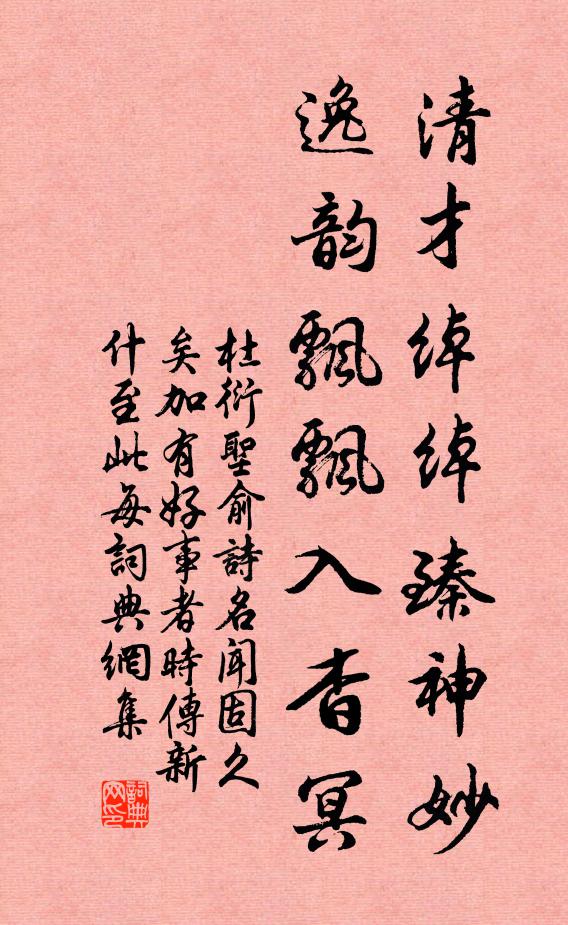 清才綽綽臻神妙
逸韵飄飄入杳冥
杜衍聖俞詩名聞固久
矣加有好事者時傳新
什至此每詞典網集
詞典网印